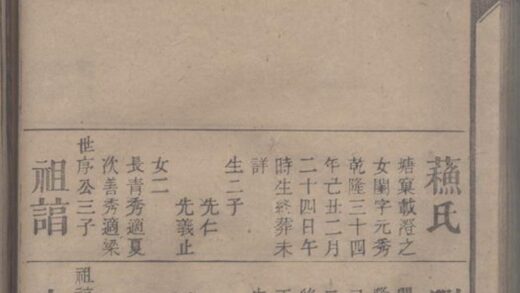 蘓氏
塘窠載澄之
女字元秀
乾隆三十四
年己丑二月
二十四日午
時生終葬未
詳
生二子
先仁
先義止
女二
長青秀適夏
次善秀適梁
世序公三子
祖